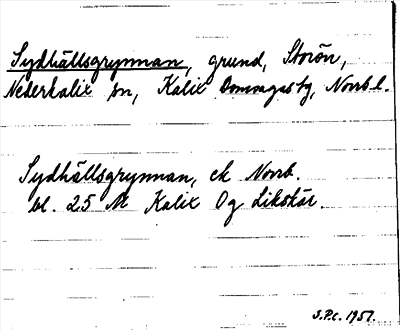 Sydhällsgrynnan, grund, Storön,
Nederkalix sn, Kalix Domsagas tg, Norrb l.
Sydhällsgrynnan, ek Norrb.
bl. 25 Kalix Og Likskär.
S.P.C. 1957.